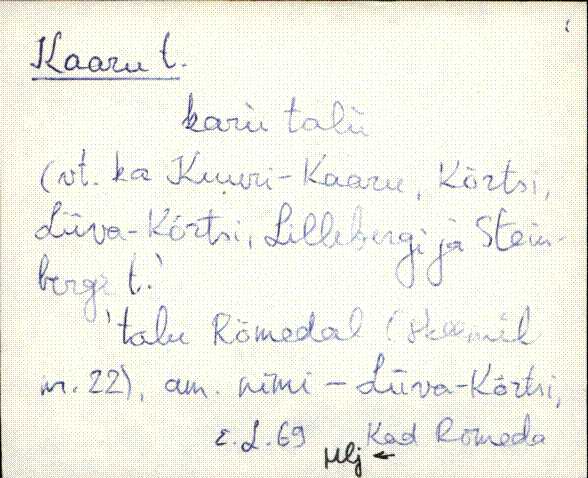 Kaaru t.
karu talu
(vt. ka Kuuri-Kaaru, Kõrtsi,
Liiva-Kõrtsi, Lillebergi ja Stein-
bergi t.)
'talu Rõmedal (
nr. 22), am. nimi - Liiva-Kõrtsi,
E.L. 69 Kad Rõmeda
Mlj ←